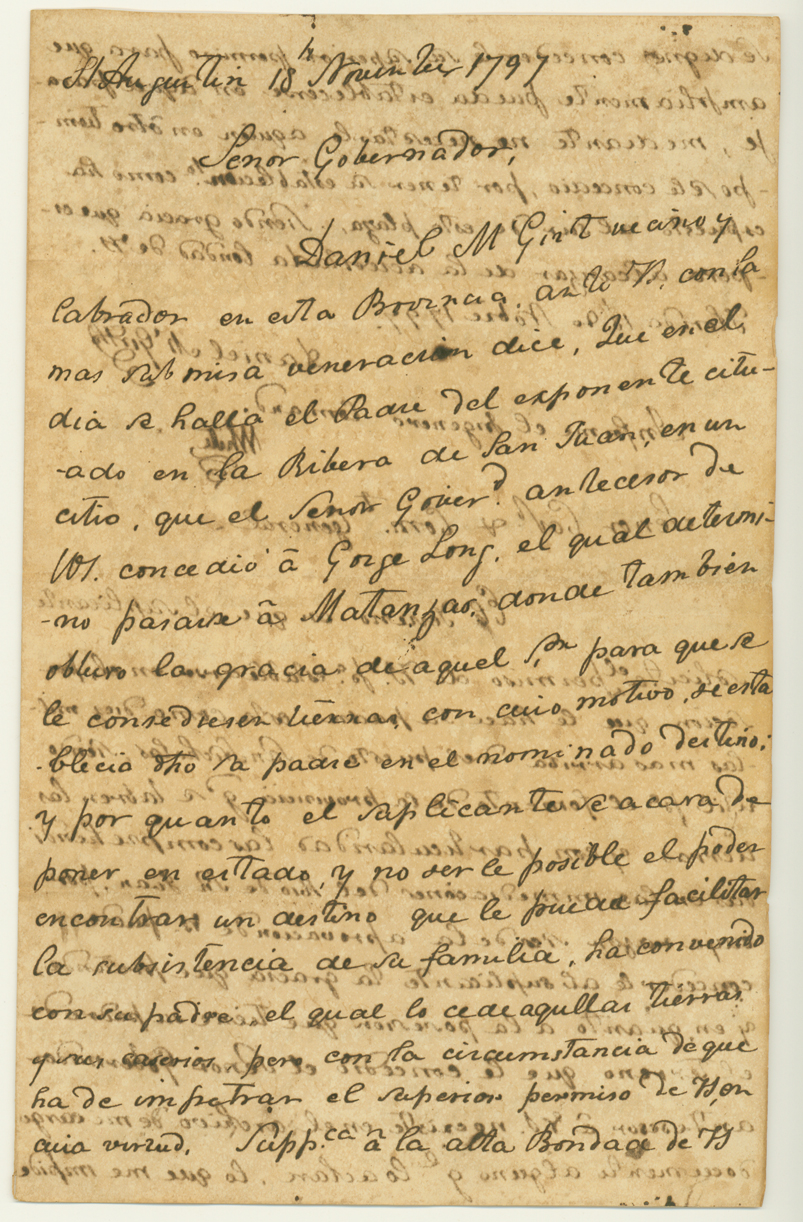 St Augustin 18 Noviembre 1797
Senor Gobernador,
Daniel M Girt vecino y
labrador en esta Provincia, ante VS. con la
mas submisa veneracion dice, Que en el
dia se halla el Padre del exponente citu-
-ado en la Ribera de San Juan, en un
citio, que el Senor Gover.d antecesor de
VS. concedió â Gorge Long, el qual determi-
-no pasarse â Matanzas, donde tambien
obtuvo la gracia de aquel Sor para que se
le consediesen tierras, con cuio motivo, se esta
-blecio dho su padre en el nominado destino;
y por quanto el suplicante se acava de
poner en estado, y no ser le posible el poder
encontrar un destino que le pueda facilitar
la subsistencia de su familia, ha convenido
con su padre el qual lo cede aqullas tierras
y sus caserios, pero con la circumstancia de que
ha de impetrar el superior permiso de VS, en
cuia virtud. Supp.ca â la alta Bondad de VS